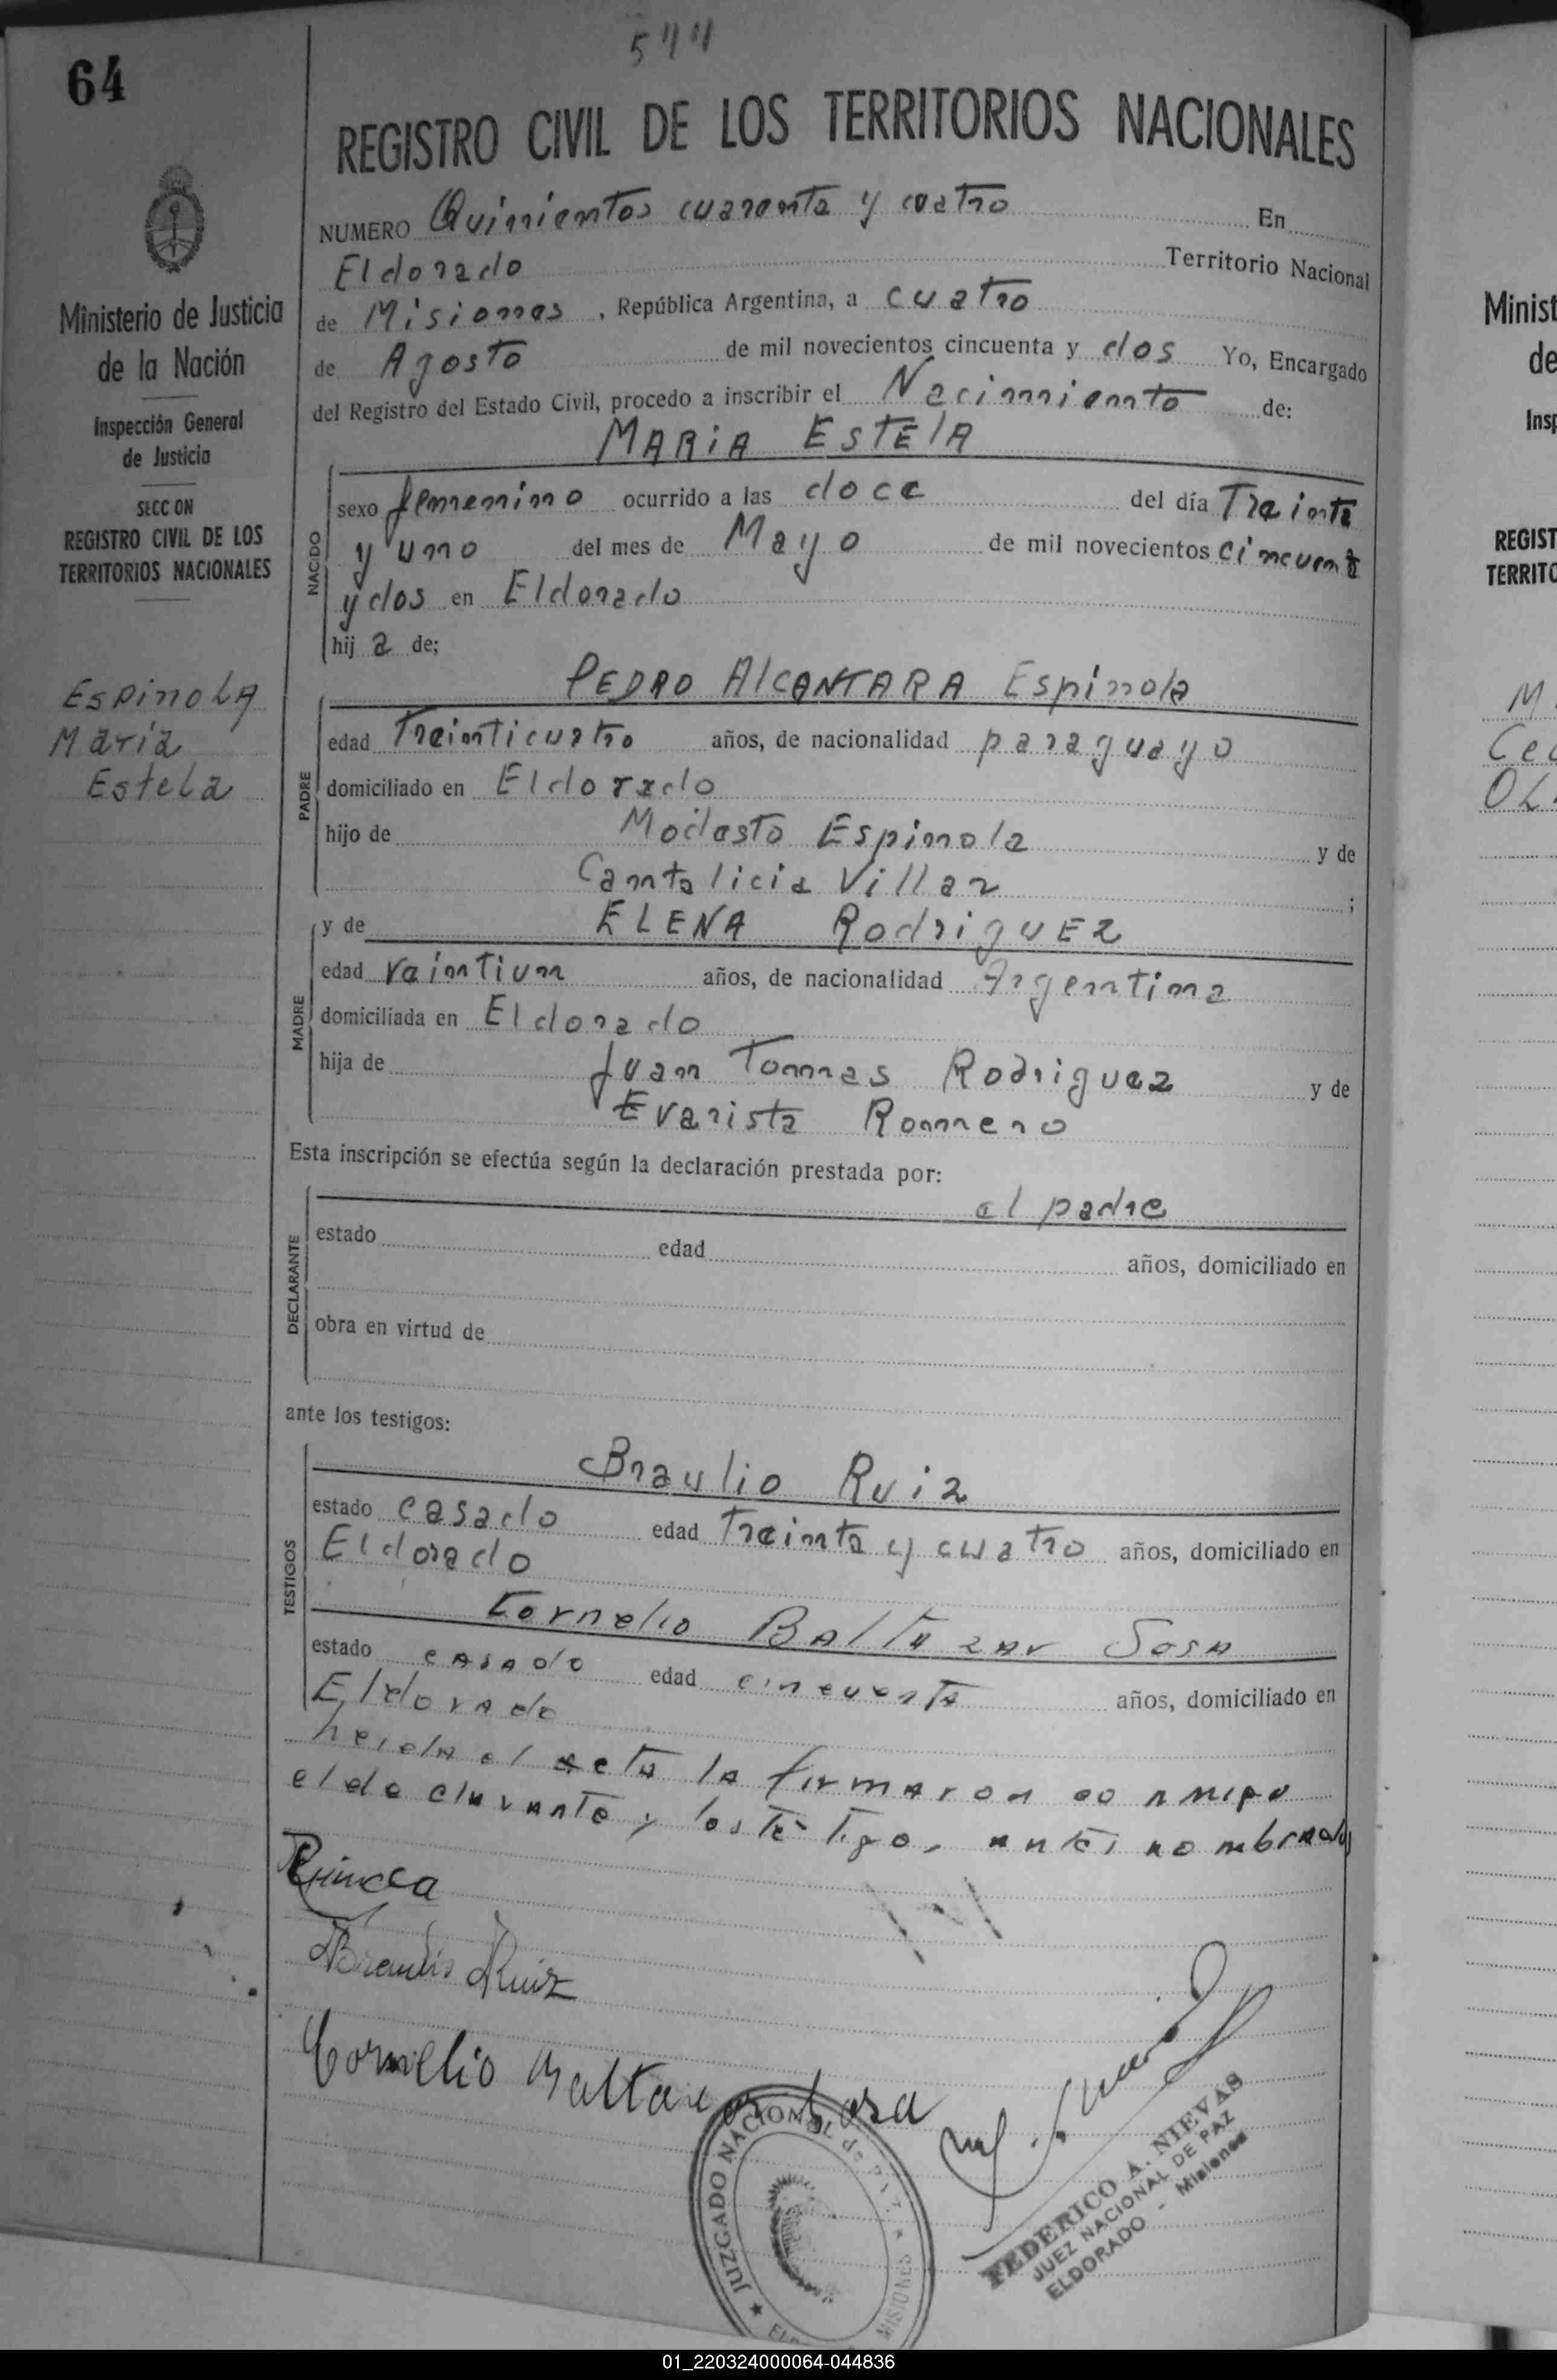 544
64
REGISTRO CIVIL DE LOS TERRITORIOS NACIONALES
NUMERO Quinientos cuarenta y cuatro En
Eldorado Territorio Nacional
de Misiones, República Argentina, a cuatro
de Agosto de mil novecientos cincuenta y dos Yo, Encargado
del Registro del Estado Civil, procedo a inscribir el Nacimiento de:
MARIA ESTElA
NACIDO
sexo femenino ocurrido a las doce del día Treinta
y uno del mes de Mayo de mil novecientos cincuenta
y dos en Eldorado
hij a de;
PEDRO AlCANTARA Espinola
PADRE
edad Treinticuatro años, de nacionalidad paraguayo
domiciliado en Eldorado
hijo de Modesto Espinola y de
Cantalicia Villar ;
y de ELENA RodriguEz
MADRE
edad veintiun años, de nacionalidad Argentina
domiciliada en Eldorado
hija de Juan Tomas Rodriguez y de
Evarista Romero
Esta inscripción se efectúa según la declaración prestada por:
el padre
DECLARANTE
estado edad años, domiciliado en
obra en virtud de
ante los testigos:
TESTIGOS
Braulio Ruiz
estado casado edad Treinta y cuatro años, domiciliado en
Eldorado
Cornelio Baltazar Sosa
estado casado edad cincuenta años, domiciliado en
Eldorado
heida el acta la firmaron conmigo
el declarante y los testigos antes nombrados
Braulio Ruiz
Cornelio Baltazar Sosa
JUZGADO NACIONAL de PAZ
MISIONES
FEDERICO A. NIEVAS
JUEZ NACIONAL DE PAZ
ELDORADO - Misiones
Ministerio de Justicia
de la Nación
Inspección General
de Justicia
SECC ON
REGISTRO CIVIL DE LOS
TERRITORIOS NACIONALES
EspinoLa
Maria
Estela
Minist
de
Insp
REGIST
TERRITO
M
Cec
OL
01_220324000064-044836